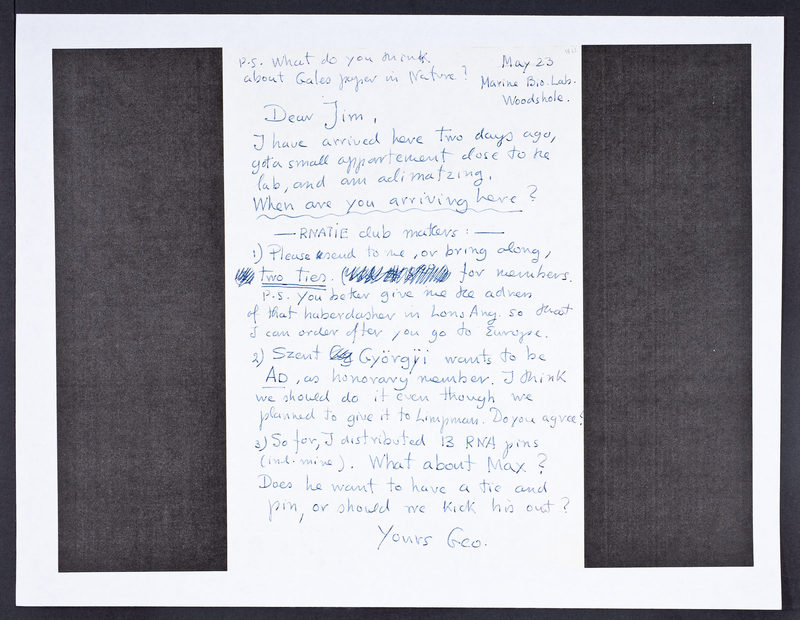 P.S. What do you think
about Gales paper in Nature?
May 23
Marine Bio. Lab.
Woodshole.
Dear Jim,
I have arrived here two days ago,
got a small appartement close to the
lab, and am aclimatzing.
When are you arriving here?
— RNATIE club matters: —
1) Please send to me, or bring along,
two ties. for members.
P.S. You better give me the adress
of that haberdasher in Lons Ang. so that
I can order after you go to Europe.
2) Szent Györgyi wants to be
AD, as honorary member. I think
we should do it even though we
planned to give it to Limpman. Do you agree?
3) So far, I distributed 13 RNA pins
(incl. mine). What about Max?
Does he want to have a tie and
pin, or should we kick his out?
Yours Geo.